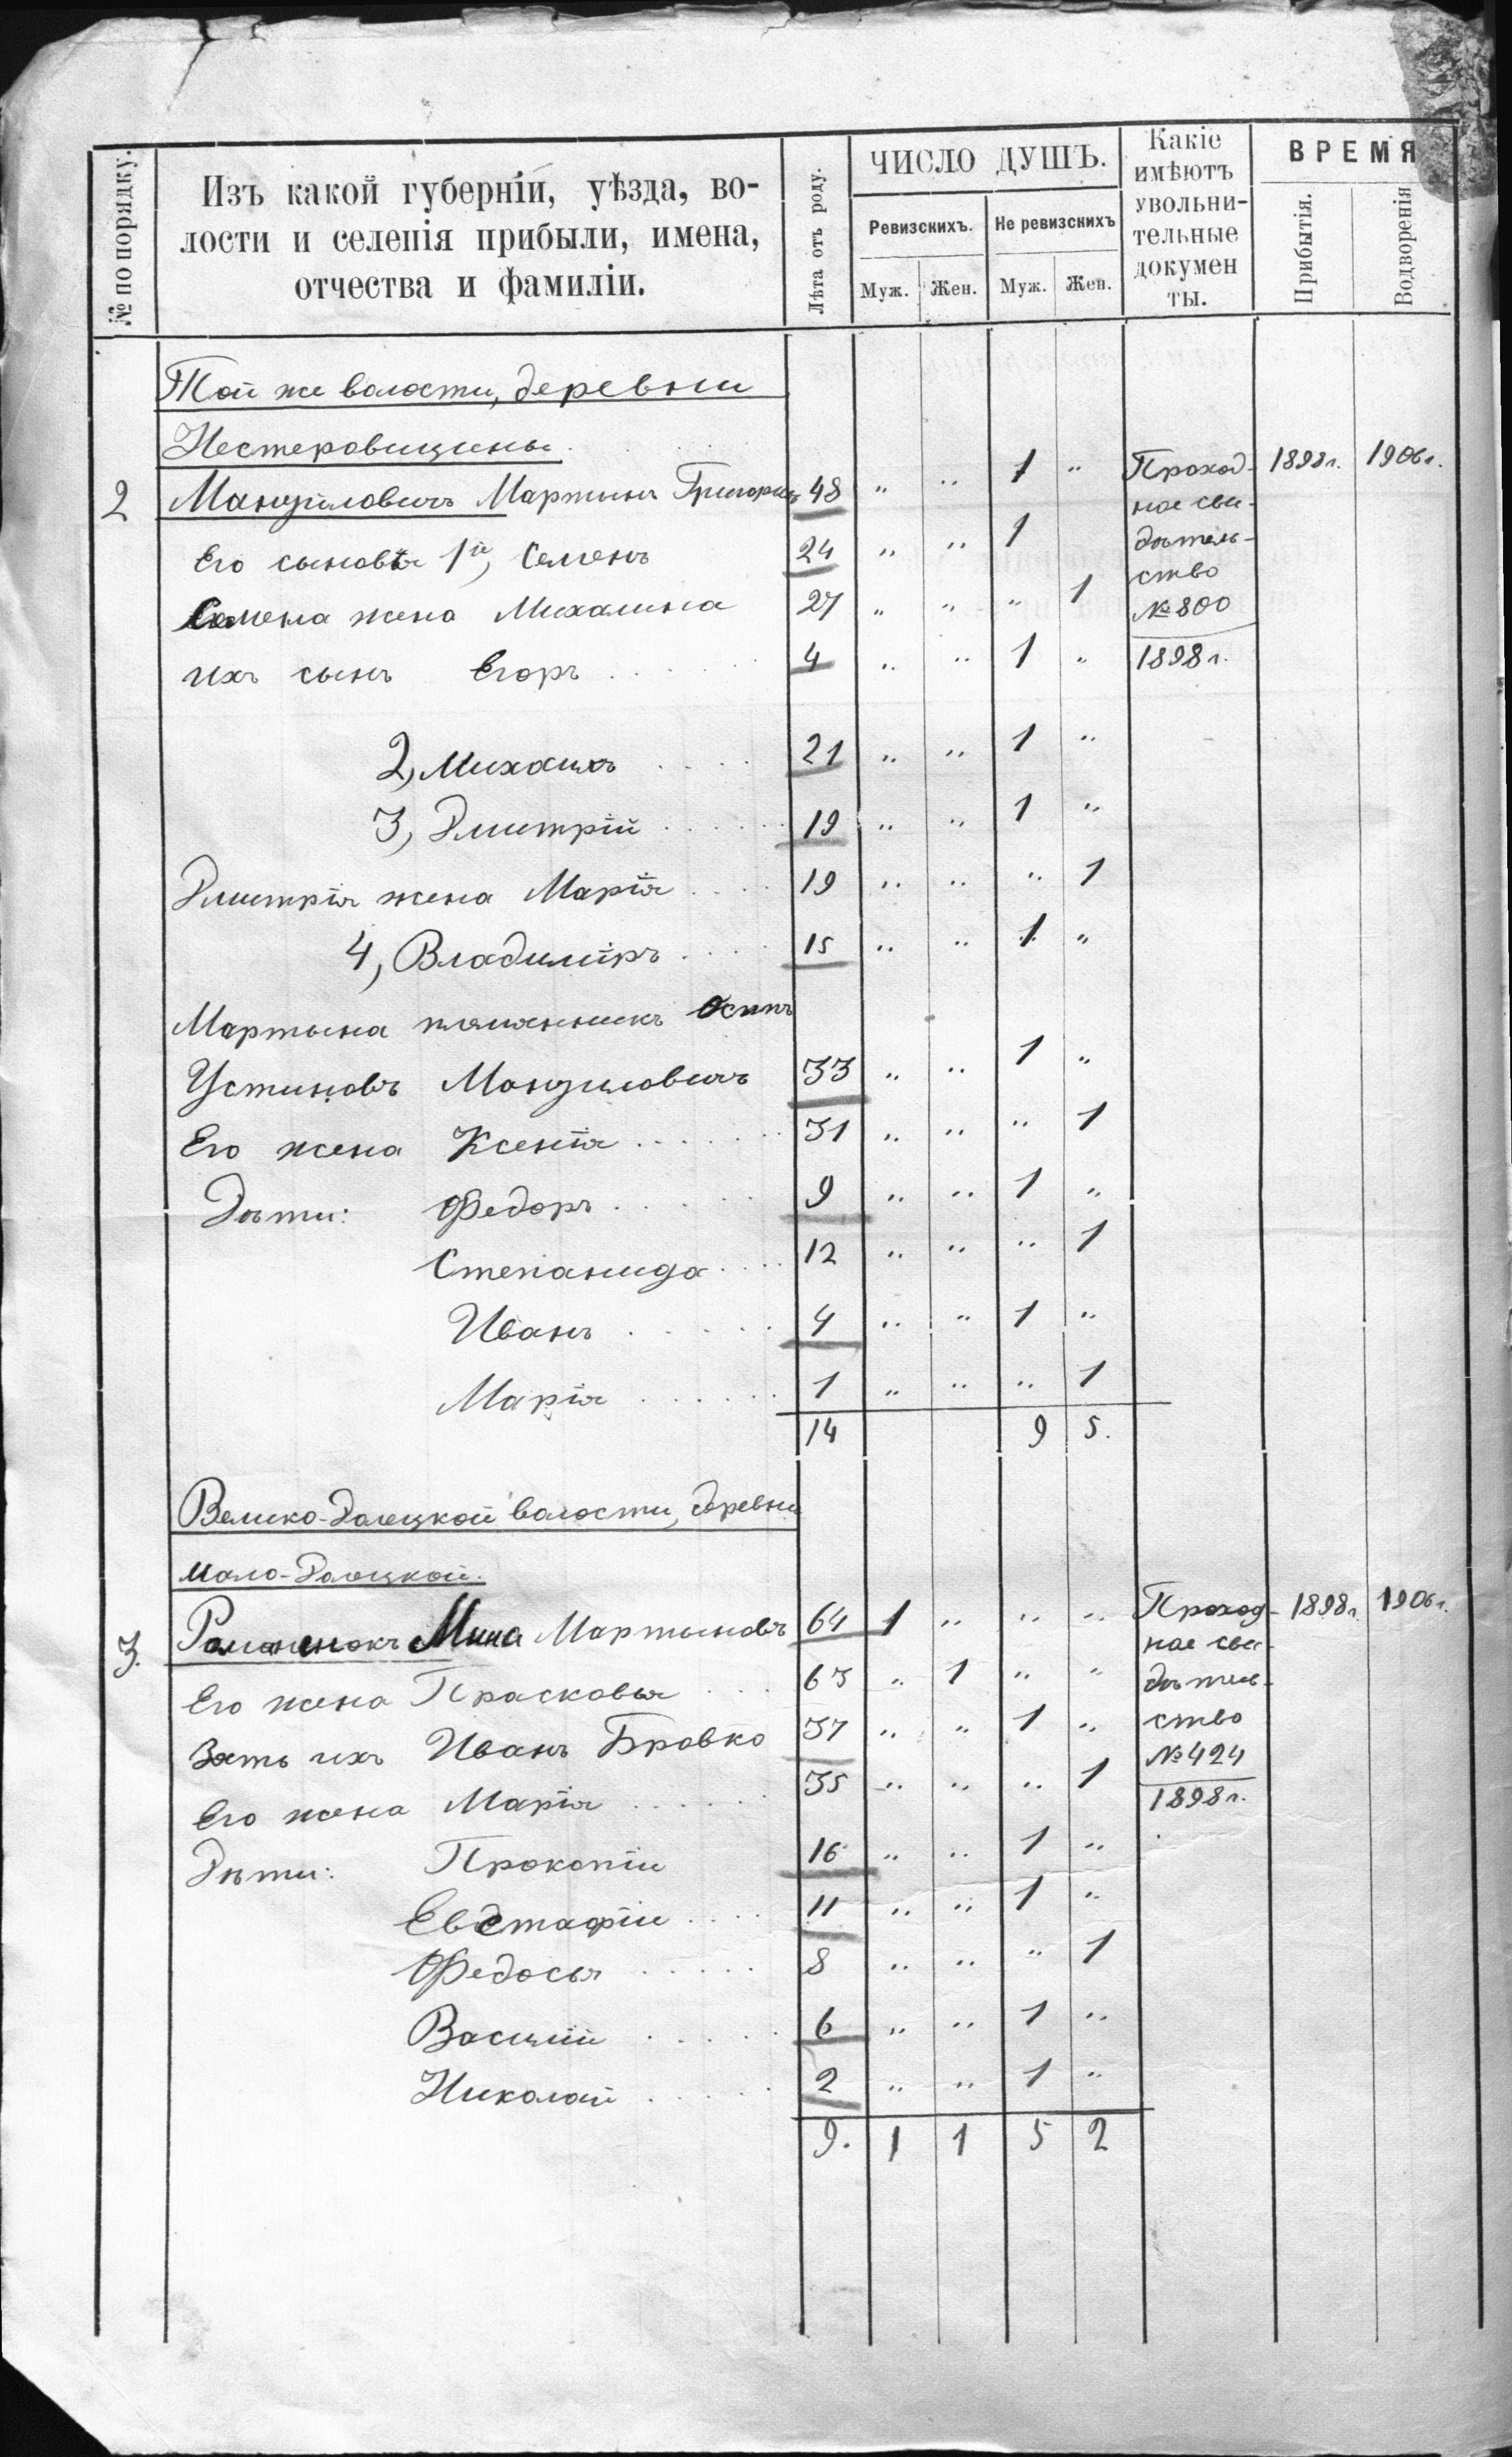 № по порядку.
Изъ какой губерніи, уѣзда, во-
лости и селенія прибыли, имена,
отчества и фамиліи.
Лѣта отъ роду.
ЧИСЛО ДУШЪ.
Ревизскихъ.
Не ревизскихъ
Муж.
Жен.
Муж.
Жен.
Какіе
имѣютъ
увольни-
тельные
докумен
ты.
ВРЕМЯ
Прибытія.
Водворенія
Той же волости, деревни
Нестеровщины
2 Мануйловичъ Мартынъ Григорьевъ 48 " " 1 " Проход- 1898г. 1906г.
ное сви-
Его сыновья 1й, Семенъ 24 " " 1 дѣтель-
ство
Семена жена Михалина 27 " " " 1 №800
ихъ сынъ Егоръ 4 " " 1 " 1898г.
2, Михаилъ 21 " " 1 "
3, Дмитрій 19 " " 1 "
Дмитрія жена Марія 19 " " " 1
4, Владиміръ 15 " " 1 "
Мартына племянникъ Осипъ
Устиновъ Мануиловичъ 33 " " 1 "
Его жена Ксенія 31 " " " 1
Дѣти: Федоръ 9 " " 1 "
Степанида 12 " " " 1
Иванъ 4 " " 1 "
Марія 1 " " " 1
14 9 5.
Велико-Долецкой волости, деревни
Мало-Долецкой.
3. Романенокъ Мина Мартыновъ 64 1 " " " Проход- 1898г. 1906г.
ное сви-
Его жена Прасковья 63 " 1 " " дѣтель-
Зять ихъ Иванъ Бровко 37 " " 1 " ство
№424
Его жена Марія 35 " " " 1 1898г.
Дѣти: Прокопіи 16 " " 1 "
Евстафіи 11 " " 1 "
Федосья 8 " " " 1
Василій 6 " " 1 "
Николай 2 " " 1 "
9. 1 1 5 2